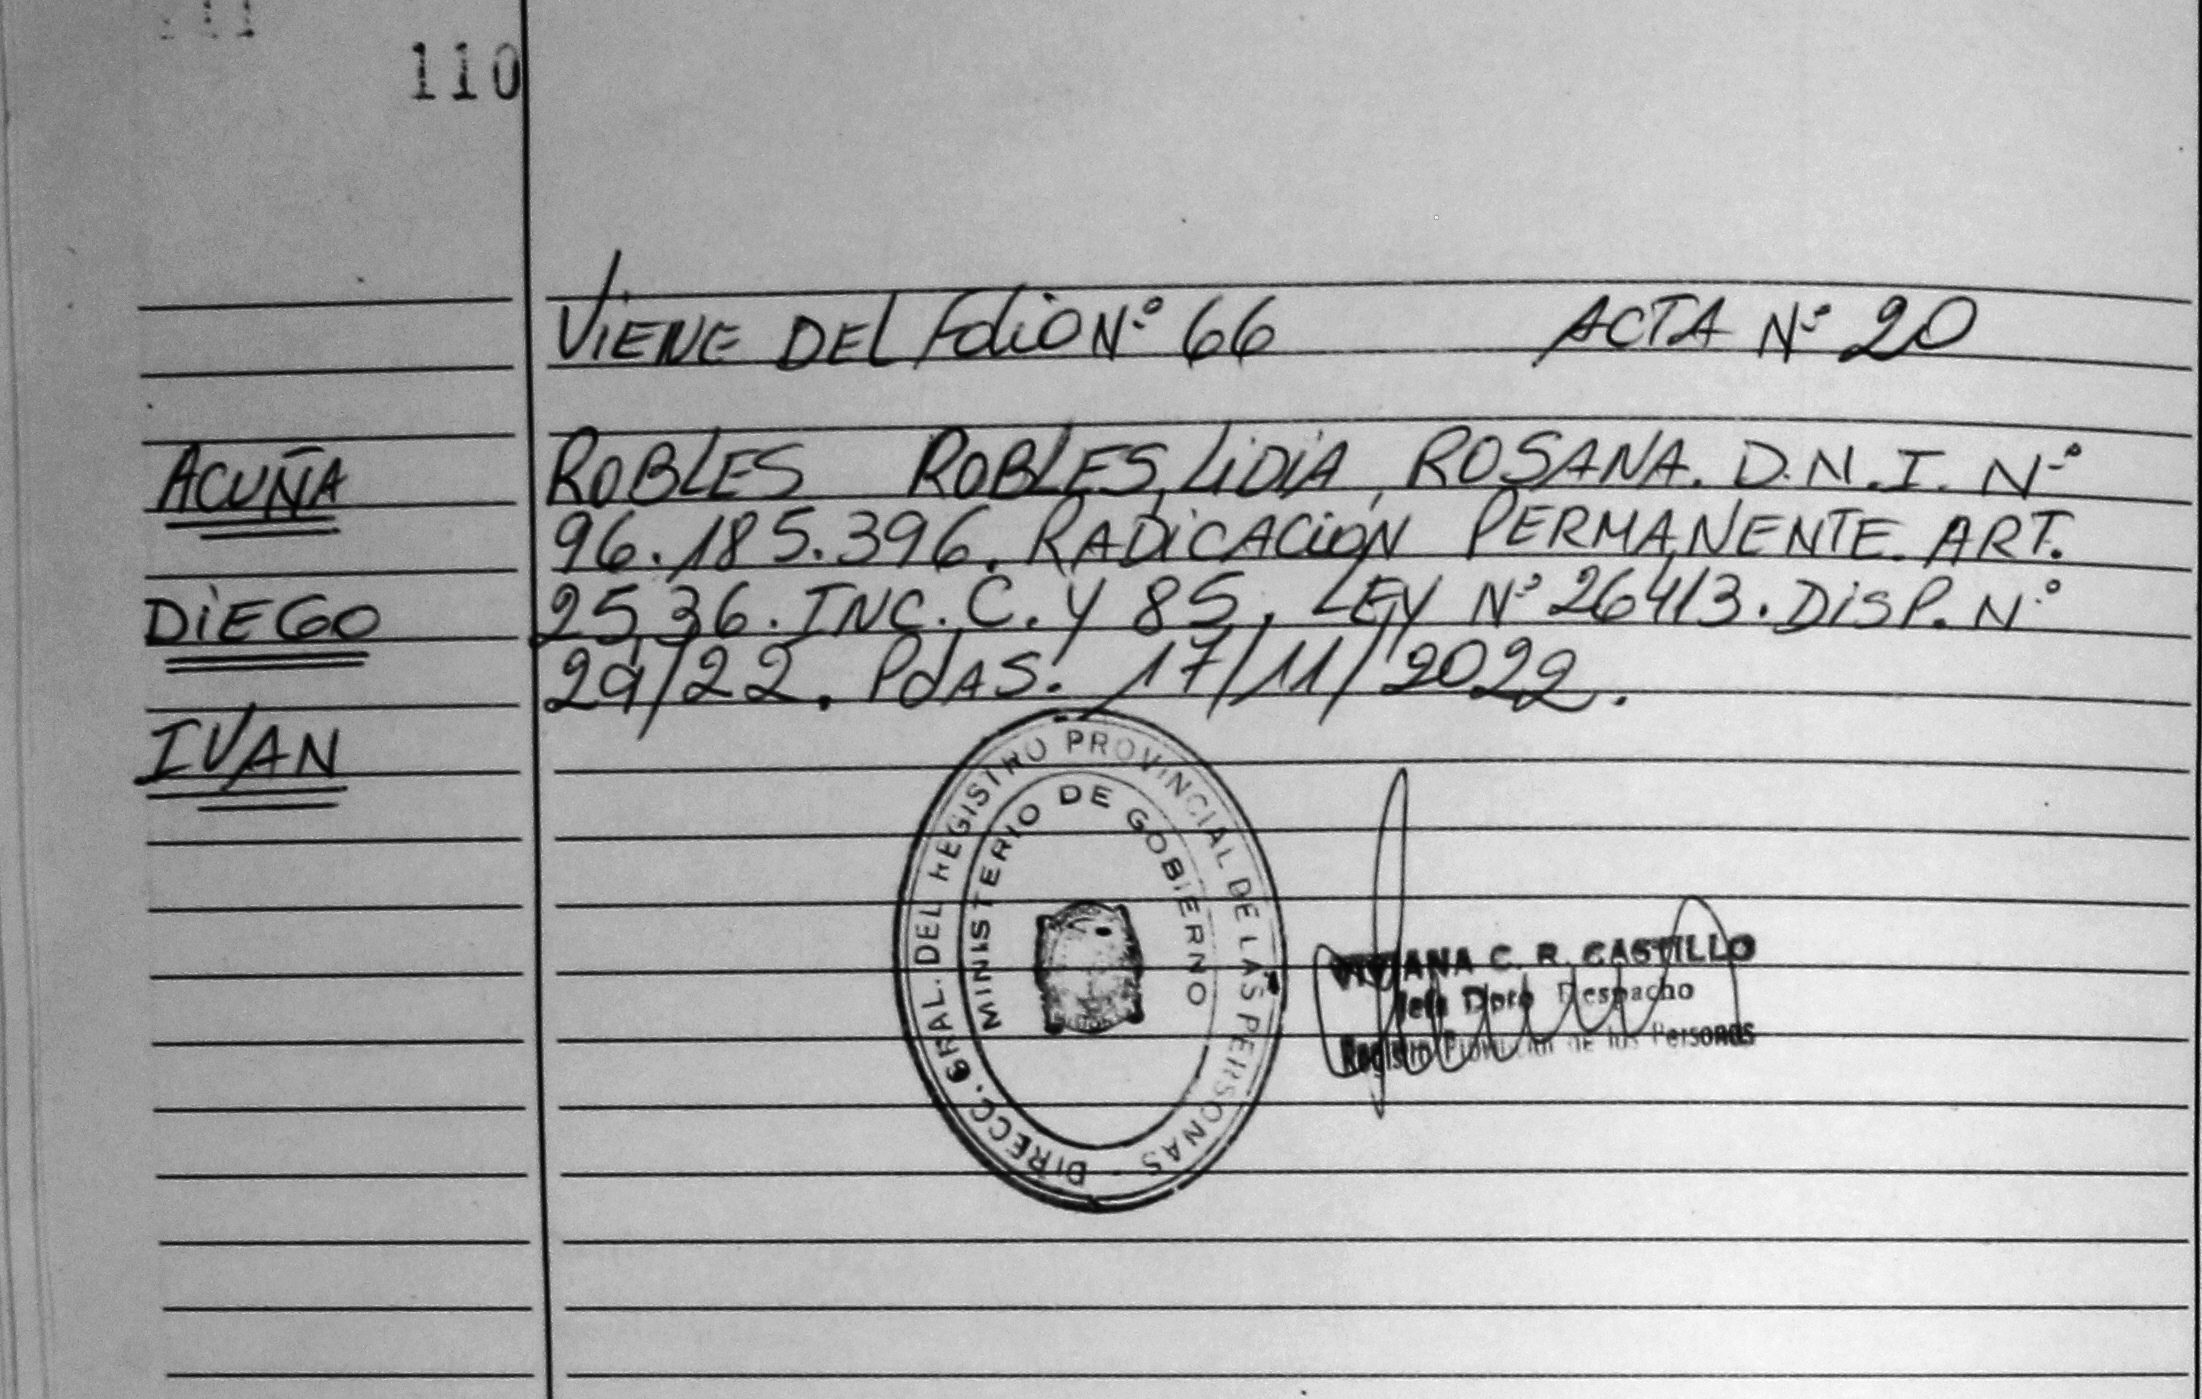 110
VIENE DEL FOLIO Nº 66 ACTA Nº 20
ACUÑA
DIEGO
IVAN
ROBLES ROBLES, LIDIA, ROSANA. D.N.I. Nº
96.185.396. RADICACIÓN PERMANENTE. ART.
25,36. INC. C. Y 85. LEY Nº 26413. DISP. Nº
29/22. PdAS. 17/11/2022.
DIRECC. GRAL. DEL REGISTRO PROVINCIAL DE LAS PERSONAS -
MINISTERIO DE GOBIERNO
C. R. CASTILLO
Jefe Dpto Despacho
Registro Provincial de las Personas